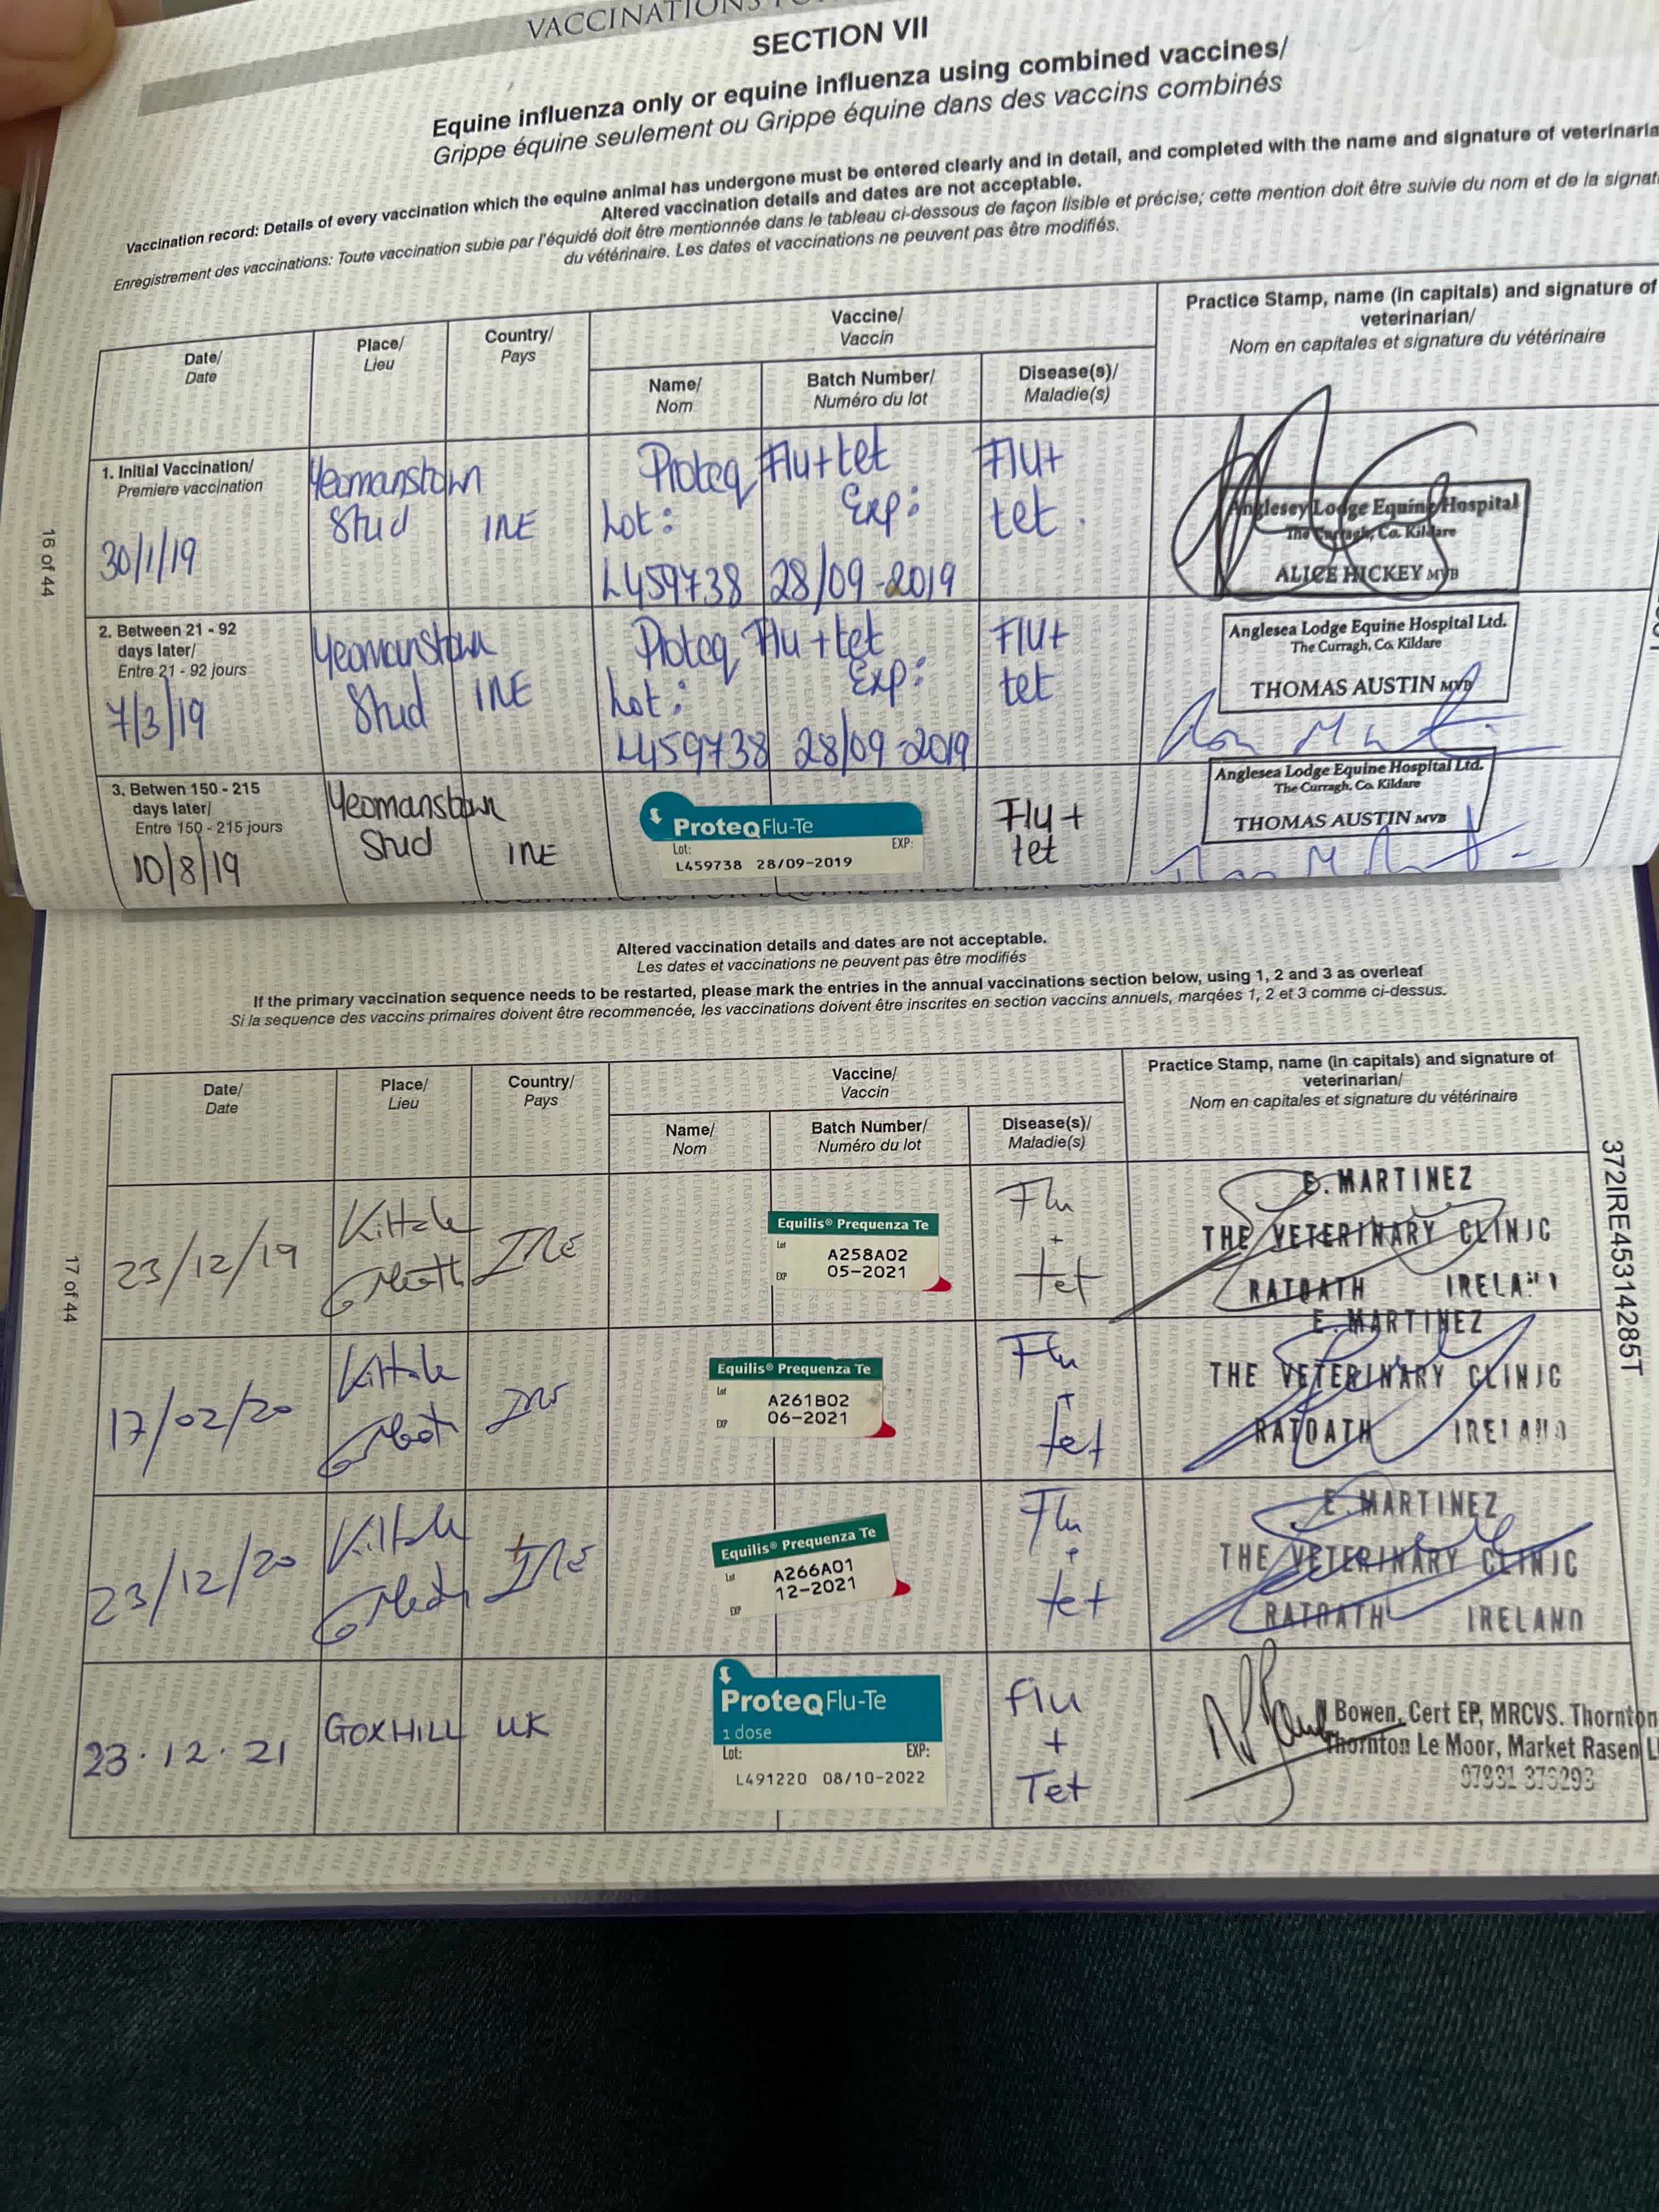 VACCINATIONS
SECTION VII
Equine influenza only or equine influenza using combined vaccines/
Grippe équine seulement ou Grippe équine dans des vaccins combinés
Vaccination record: Details of every vaccination which the equine animal has undergone must be entered clearly and in detail, and completed with the name and signature of veterinaria
Altered vaccination details and dates are not acceptable.
Enregistrement des vaccinations: Toute vaccination subie par l'équidé doit être mentionnée dans le tableau ci-dessous de façon lisible et précise; cette mention doit être suivie du nom et de la signat
du vétérinaire. Les dates et vaccinations ne peuvent pas être modifiés.
Date/
Date
Place/
Lieu
Country/
Pays
Vaccine/
Vaccin
Name/
Nom
Batch Number/
Numéro du lot
Disease(s)/
Maladie(s)
Practice Stamp, name (in capitals) and signature of
veterinarian/
Nom en capitales et signature du vétérinaire
1. Initial Vaccination/
Premiere vaccination
30/1/19
Yeomanstown
Stud
IRE
Proteq Flu+tet
Lot: Exp:
L459738 28/09-2019
Flu+
tet.
Anglesey Lodge Equine Hospital
The Curragh, Co. Kildare
ALICE HICKEY MVB
2. Between 21 - 92
days later/
Entre 21 - 92 jours
7/3/19
Yeomanstown
Stud
IRE
Proteq Flu+tet
Lot: Exp:
L459738 28/09-2019
Flu+
tet
Anglesea Lodge Equine Hospital Ltd.
The Curragh, Co. Kildare
THOMAS AUSTIN MVB
3. Betwen 150 - 215
days later/
Entre 150 - 215 jours
10/8/19
Yeomanstown
Stud
IRE
ProteqFlu-Te
Lot: EXP:
L459738 28/09-2019
Flu+
tet
Anglesea Lodge Equine Hospital Ltd.
The Curragh, Co. Kildare
THOMAS AUSTIN MVB
16 of 44
Altered vaccination details and dates are not acceptable.
Les dates et vaccinations ne peuvent pas être modifiés
If the primary vaccination sequence needs to be restarted, please mark the entries in the annual vaccinations section below, using 1, 2 and 3 as overleaf
Si la sequence des vaccins primaires doivent être recommencée, les vaccinations doivent être inscrites en section vaccins annuels, marqées 1, 2 et 3 comme ci-dessus.
Date/
Date
Place/
Lieu
Country/
Pays
Vaccine/
Vaccin
Name/
Nom
Batch Number/
Numéro du lot
Disease(s)/
Maladie(s)
Practice Stamp, name (in capitals) and signature of
veterinarian/
Nom en capitales et signature du vétérinaire
23/12/19
Kiltale
Meath
IRE
Equilis® Prequenza Te
Lot A258A02
EXP 05-2021
Flu
+
tet
E. MARTINEZ
THE VETERINARY CLINIC
RATOATH IRELAND
17/02/20
Kiltale
Meath
IRE
Equilis® Prequenza Te
Lot A261B02
EXP 06-2021
Flu
+
tet
E. MARTINEZ
THE VETERINARY CLINIC
RATOATH IRELAND
23/12/20
Kiltale
Meath
IRE
Equilis® Prequenza Te
Lot A266A01
EXP 12-2021
Flu
+
tet
E. MARTINEZ
THE VETERINARY CLINIC
RATOATH IRELAND
23.12.21
GOXHILL
UK
ProteqFlu-Te
1 dose
Lot: EXP:
L491220 08/10-2022
flu
+
Tet
Bowen, Cert EP, MRCVS. Thornton
Thornton Le Moor, Market Rasen L
17 of 44
372IRE45314285T